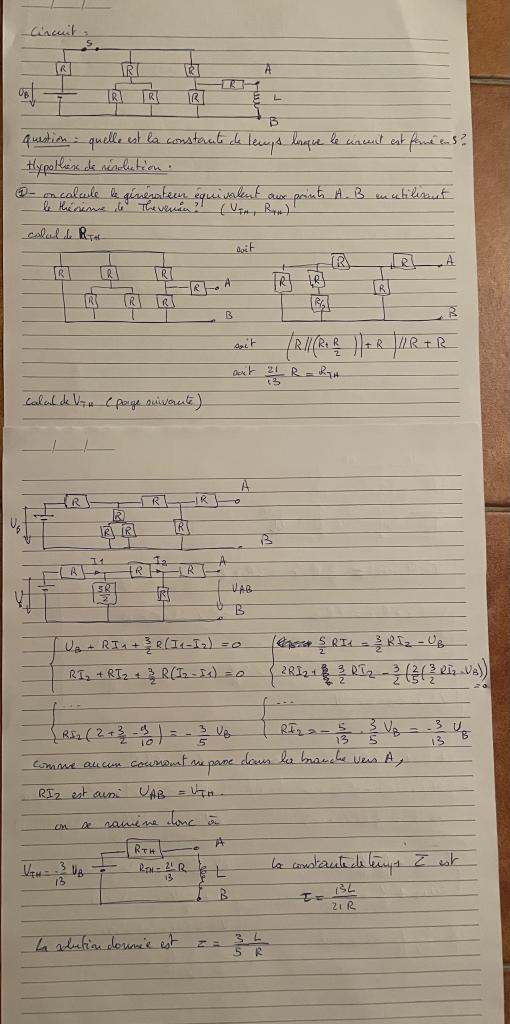 Circuit :
S
R R R R A
U_B R R R L
B
question : quelle est la constante de temps lorsque le circuit est fermé en S ?
Hypothèse de résolution .
① - on calcule le générateur équivalent aux points A-B en utilisant
le théorème de Thevenin ? (U_TH, R_TH)
calcul de R_TH soit
R R R R A
R R R B
R R A
R R R
R/2 B
soit (R//(R+R/2))+R)//R + R
soit 21/13 R = R_TH
calcul de V_TH (page suivante)
A
R R R
U_B R R R
R B
I1 I2 A
R R R
3R/2 R U_AB
B
U_B + RI1 + 3/2 R(I1-I2) = 0
RI2 + RI2 + 3/2 R(I2-I1) = 0
5/2 RI1 = 3/2 RI2 - U_B
2RI2 + 3/2 RI2 - 3/2 (2/5 (3/2 RI2 - U_B)) = 0
...
RI2 (2 + 3/2 - 9/10) = - 3/5 U_B
...
RI2 = - 5/13 . 3/5 U_B = - 3/13 U_B
comme aucun courant ne passe dans la branche vers A,
RI2 est aussi U_AB = U_TH.
on se ramène donc à
R_TH A
U_TH = - 3/13 U_B R_TH = 21/13 R L
B
la constante de temps τ est
τ = 13L/21R
La solution donnée est τ = 3/5 L/R